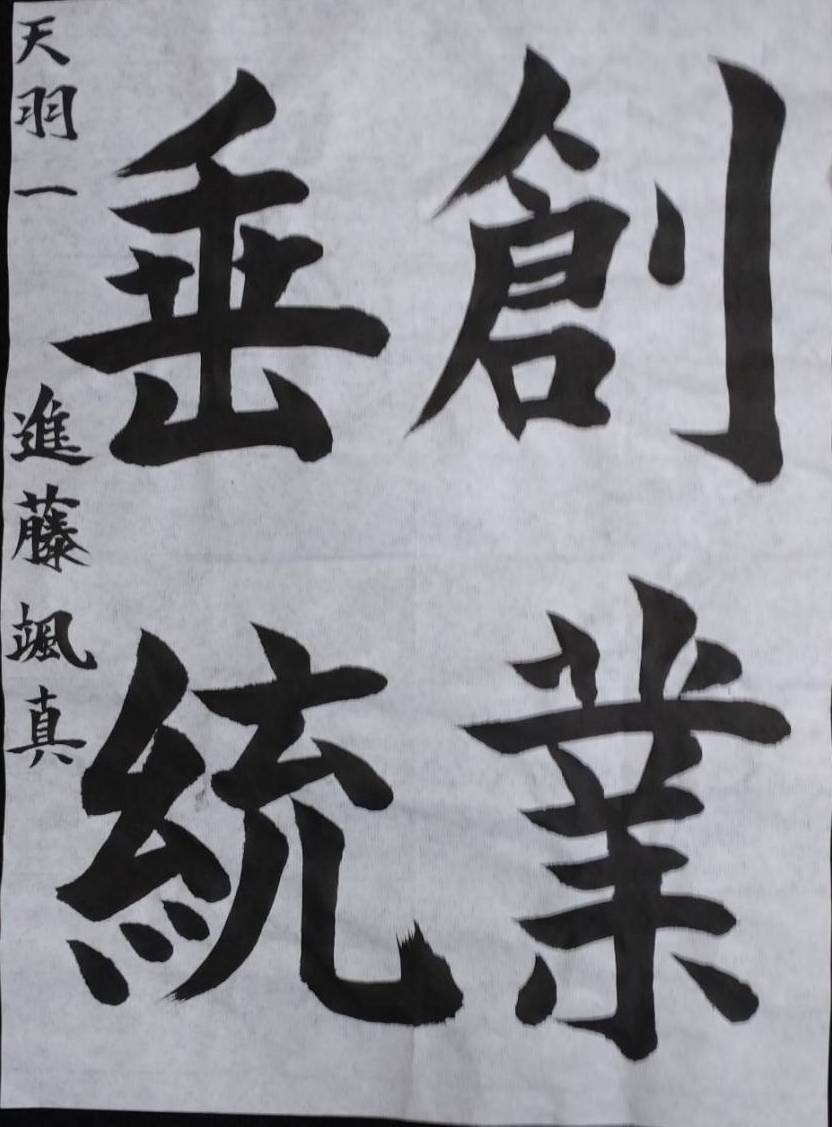 創業
垂統
天羽一 進藤颯真